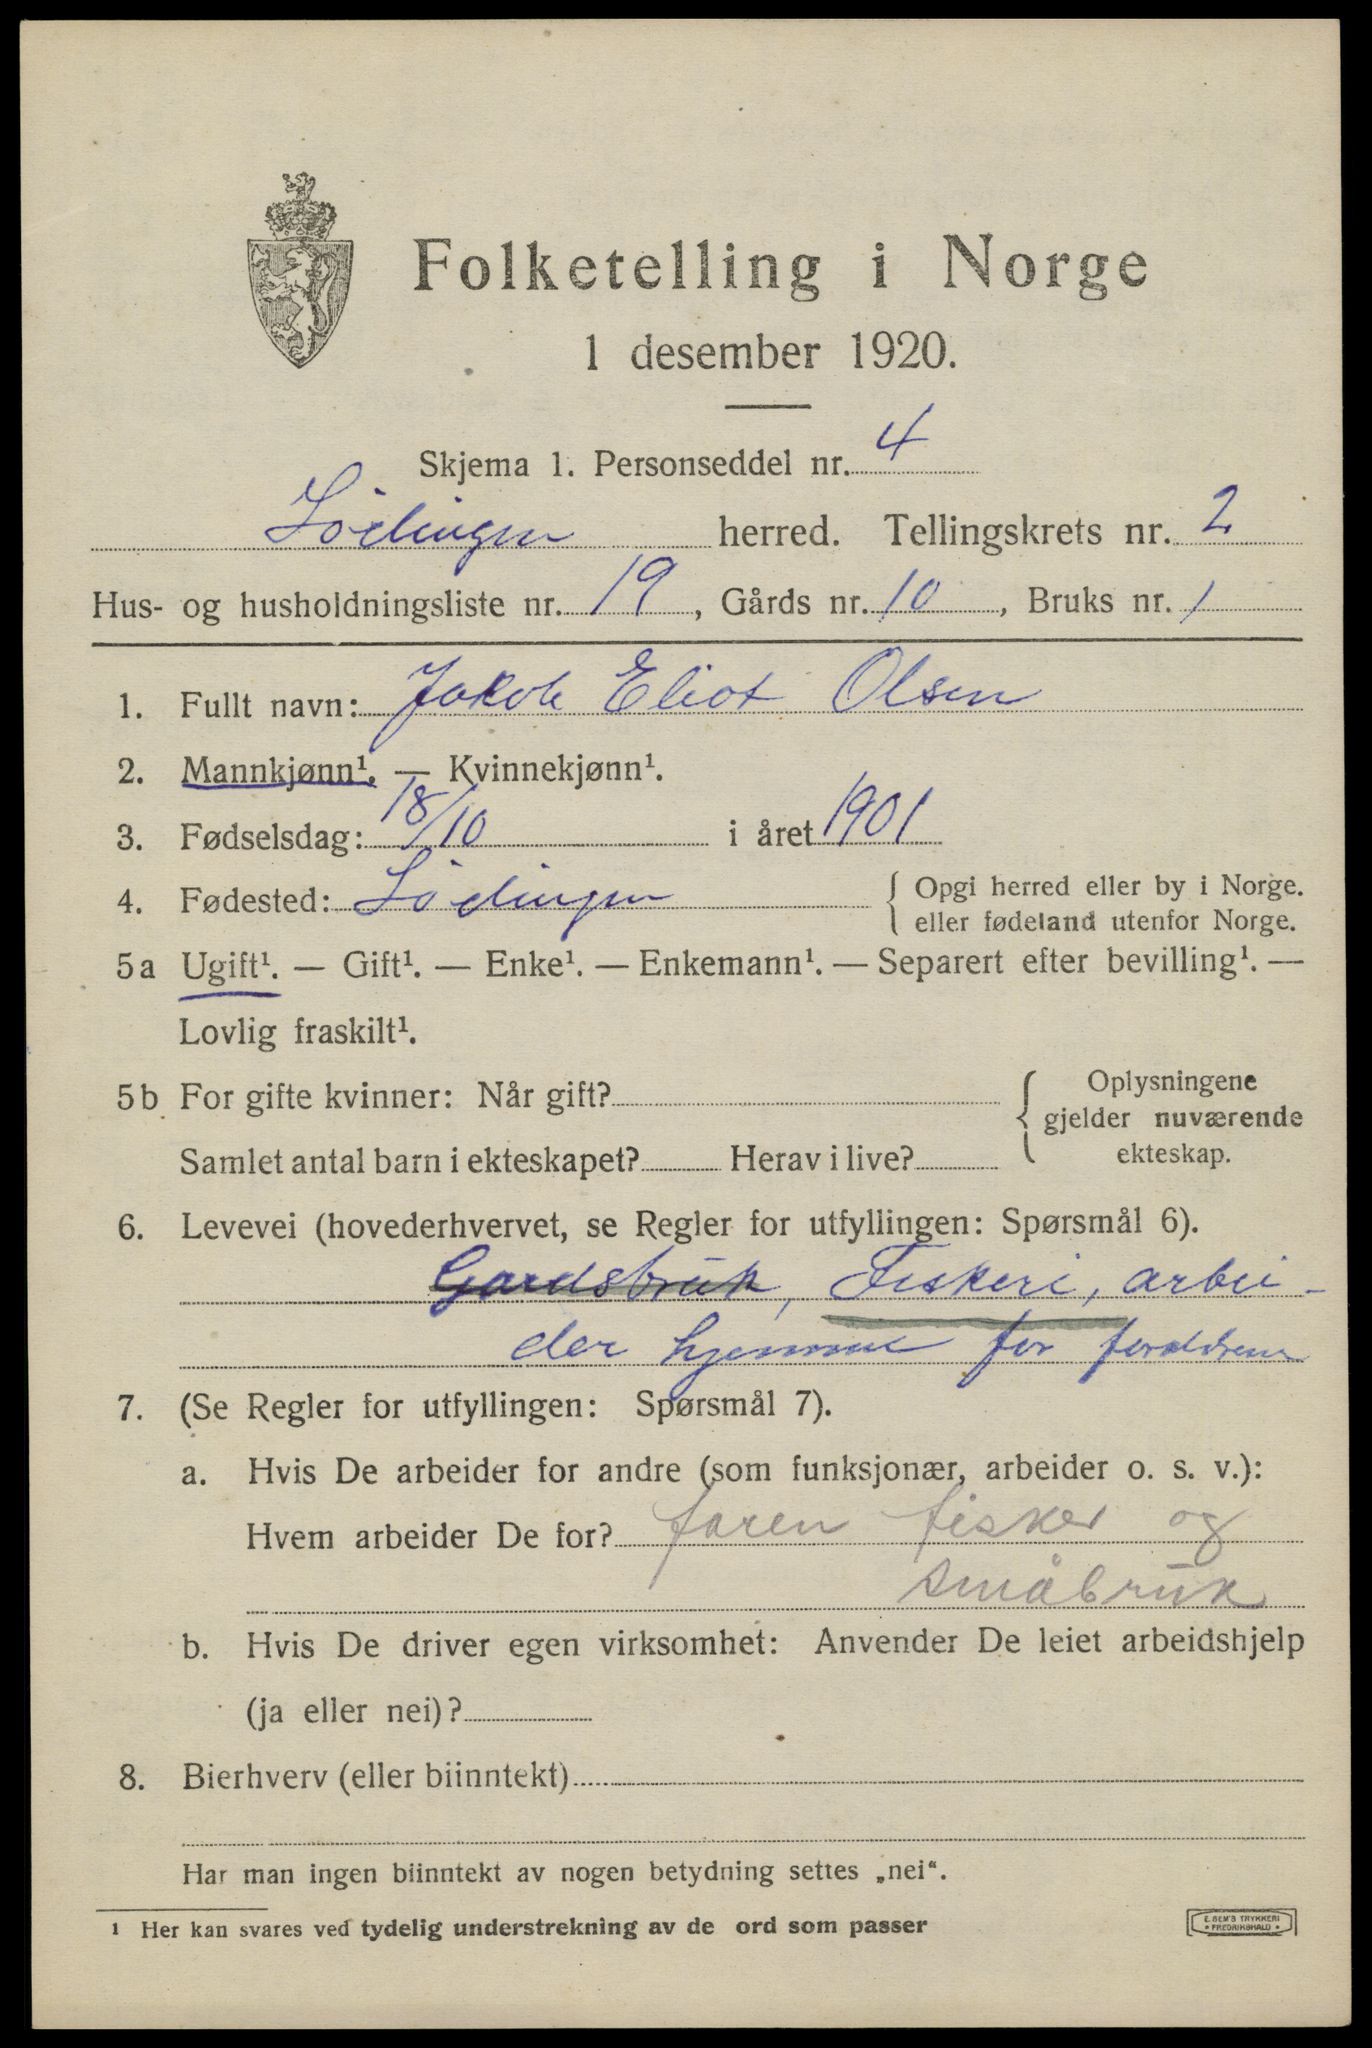 Folketelling i Norge
1 desember 1920.
Skjema 1. Personseddel nr. 4
Lödingen herred. Tellingskrets nr. 2
Hus- og husholdningsliste nr. 19, Gårds nr. 10, Bruks nr. 1
1. Fullt navn: Jakob Eliot Olsen
2. Mannkjønn¹. — Kvinnekjønn¹.
3. Fødselsdag: 18/10 i året 1901
4. Fødested: Lödingen { Opgi herred eller by i Norge.
eller fødeland utenfor Norge.
5a Ugift¹. — Gift¹. — Enke¹. — Enkemann¹. — Separert efter bevilling¹. —
Lovlig fraskilt¹.
5b For gifte kvinner: Når gift? { Oplysningene
gjelder nuværende
Samlet antal barn i ekteskapet? Herav i live? ekteskap.
6. Levevei (hovederhvervet, se Regler for utfyllingen: Spørsmål 6).
Gardsbruk, Fiskeri, arbei-
der hjemme for foreldrene
7. (Se Regler for utfyllingen: Spørsmål 7).
a. Hvis De arbeider for andre (som funksjonær, arbeider o. s. v.):
Hvem arbeider De for? faren fisker og
småbruk
b. Hvis De driver egen virksomhet: Anvender De leiet arbeidshjelp
(ja eller nei)?
8. Bierhverv (eller biinntekt)
Har man ingen biinntekt av nogen betydning settes „nei“.
¹ Her kan svares ved tydelig understrekning av de ord som passer
E. SEM'S TRYKKERI
• FREDRIKSHALD •